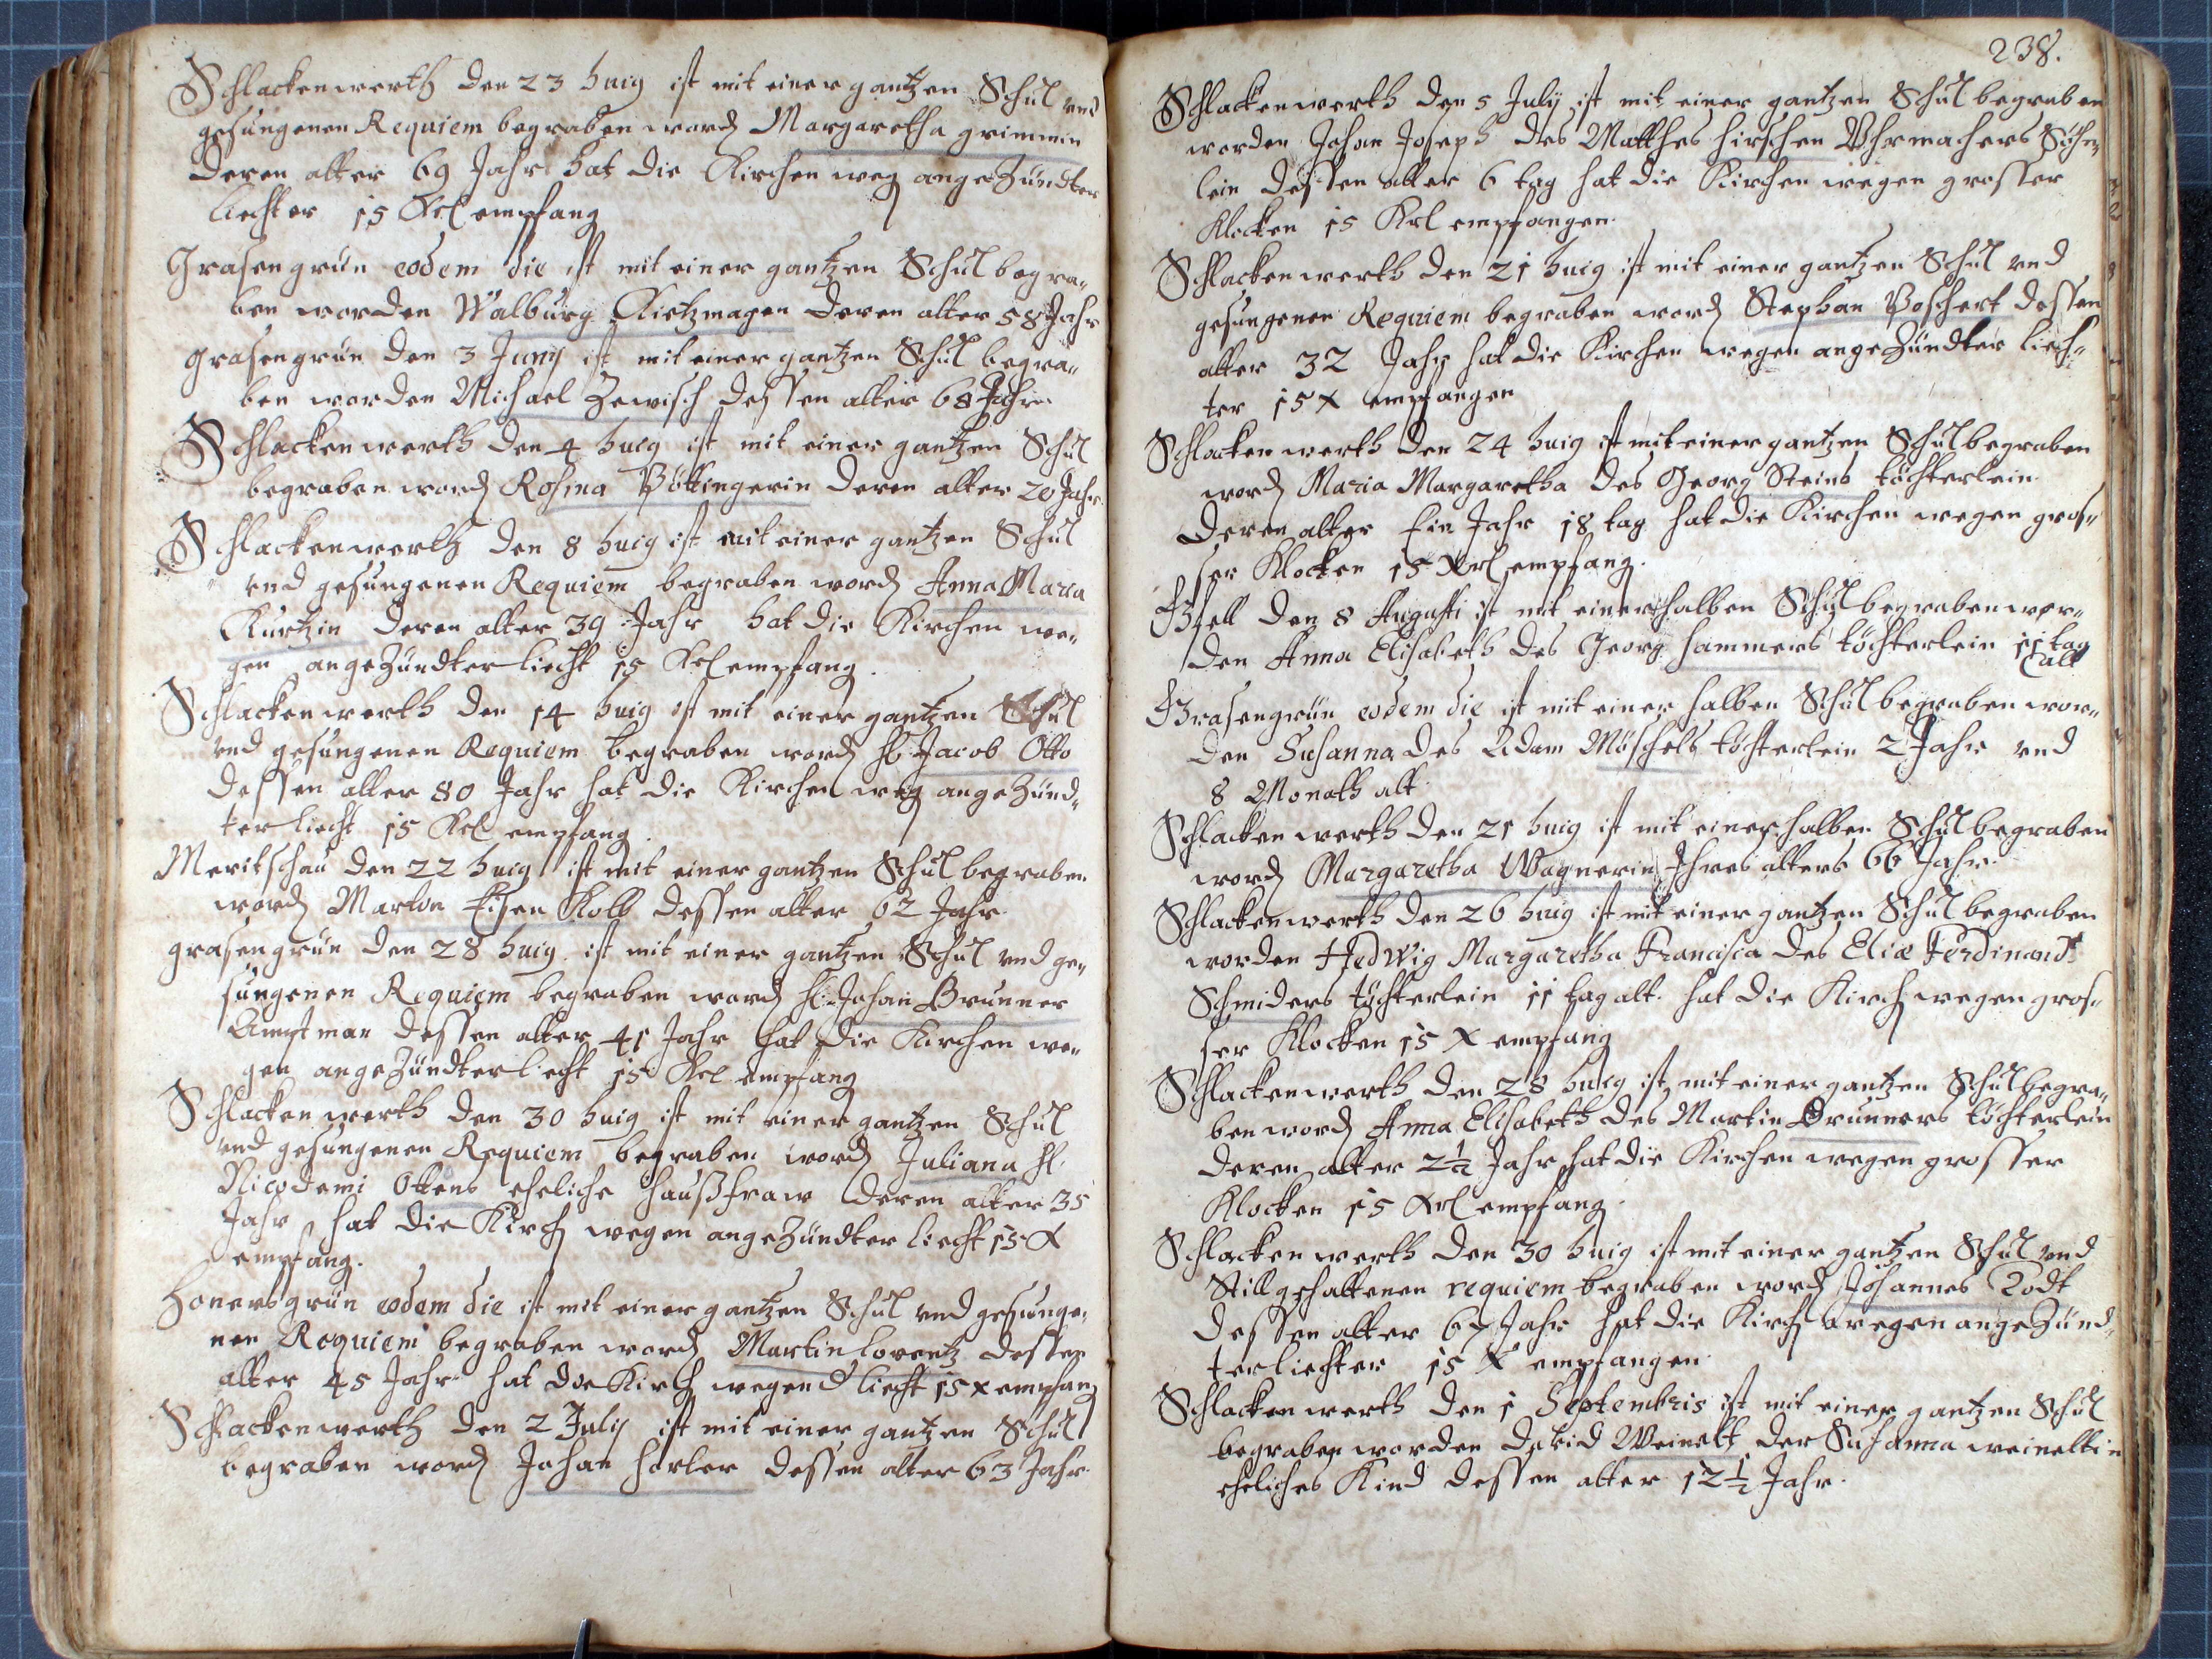 Schlackenwerth den 23 huig ist mit einer gantzen Schul vnd
gesungenen Requiem begraben word Margaretha grimmin
deren alter 69 Jahr hat die Kirchen weg angezündter
liechter 15 Krl empfang
Grasengrün eodem die ist mit einer gantzen Schul begra„
ben worden Walburg Kietzmagen deren alter 58 Jahr
Grasengrün den 3 Juny ist mit einer gantzen Schul begra„
ben worden Michael Zewisch dessen alter 68 Jahr
Schlackenwerth den 4 huig ist mit einer gantzen Schul
begraben word Rosina Pöttingerin deren alter 20 Jahr
Schlackenwerth den 8 huig ist mit einer gantzen Schul
vnd gesungenen Requiem begraben word Anna Maria
Kurtzin deren alter 39 Jahr hat die Kirchen we„
gen angezündter liecht 15 Krl empfang.
Schlackenwerth den 14 huig ist mit einer gantzen Schul
vnd gesungenen Requiem begraben word H. Jacob Otto
dessen alter 80 Jahr hat die Kirchen weg angezünd„
ter liecht 15 Krl empfang.
Meritschau den 22 huig ist mit einer gantzen Schul begraben
word Marton Eisen Kolb dessen alter 62 Jahr
grasengrün den 28 huig ist mit einer gantzen Schul vnd ge„
sungenen Requiem begraben word H. Johan Brunner
Amptman dessen alter 41 Jahr hat die Kirchen we„
gen angezündter liecht 15 Krl empfang
Schlackenwerth den 30 huig ist mit einer gantzen Schul
vnd gesungenen Requiem begraben word Juliana H.
Nicodemi Ottens eheliche haußfraw deren alter 35
Jahr hat die Kirch wegen angezündter liecht 15 X
empfang.
Honersgrün eodem die ist mit einer gantzen Schul vnd gesunge„
nen Requiem begraben word Martin Lorentz dessen
alter 45 Jahr hat die Kirch wegen d liecht 15 x empfang
Schlackenwerth den 2 July ist mit einer gantzen Schul
begraben word Johan Horler dessen alter 63 Jahr.
238.
Schlackenwerth den 5 July ist mit einer gantzen Schul begraben
worden Johan Joseph des Matthes Hirschen Vhrmachers Söhn„
lein dessen alter 6 tag hat die Kirchen wegen grosser
Klocken 15 Krl empfangen.
Schlackenwerth den 21 huig ist mit einer gantzen Schul vnd
gesungenen Requiem begraben word Stephan Poschert dessen
alter 32 Jahr hat die Kirchen wegen angezündter liech„
ter 15 X empfangen
Schlackenwerth den 24 huig ist mit einer gantzen Schul begraben
word Maria Margaretha des Georg Steins töchterlein
deren alter Ein Jahr 18 tag hat die Kirchen wegen gros„
ser Klocken 15 Krl empfang.
Gfell den 8 Augusti ist mit einer halben Schul begraben wor„
den Anna Elisabeth des Georg Hammers töchterlein 11 tag
alt
Grasengrün eodem die ist mit einer halben Schul begraben wor„
den Susanna des Adam Möschels töchterlein 2 Jahr vnd
8 Monath alt.
Schlackenwerth den 21 huig ist mit einer halben Schul begraben
word Margaretha Wagnerin Ihres alters 66 Jahr.
Schlackenwerth den 26 huig ist mit einer gantzen Schul begraben
worden Hedwig Margaretha Francisca des Eliæ Ferdinand
Schmiders töchterlein 11 tag alt. hat die Kirch wegen gros„
ser Klocken 15 X empfang
Schlackenwerth den 28 huig ist mit einer gantzen Schul begra„
ben word Anna Elisabeth des Martin Brunners töchterlein
deren alter 2½ Jahr hat die Kirchen wegen grosser
Klocken 15 Krl empfang.
Schlackenwerth den 30 huig ist mit einer gantzen Schul vnd
Stillgehaltenen requiem begraben word Johannes Todt
dessen alter 67 Jahr hat die Kirch wegen angezünd„
ter liechter 15 X empfangen.
Schlackenwerth den 1 Septembris ist mit einer gantzen Schul
begraben worden David Weineltz der Susanna weineltin
eheliches Kind dessen alter 12½ Jahr.